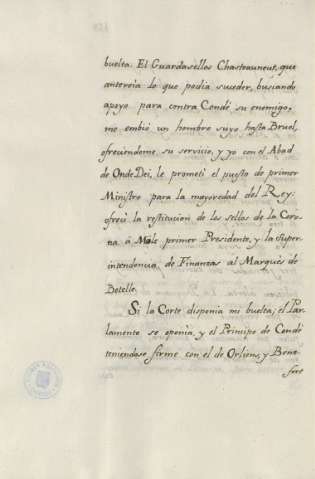 buelta. El Guardasellos Chasteauneuf, que
anteveia lo que podia suceder, buscando
apoyo para contra Condé su enemigo,
me embió un hombre suyo hasta Bruel,
ofreciendome su servicio, y yo con el Abad
de OndeDei, le prometi el puesto de primer
Ministro para la mayoredad del Rey:
ofreci la restitucion de los sellos de la Coro-
na á Mole primer Presidente, y la Super-
intendencia de Finanzas al Marqués de
Botelle.
Si la Corte disponia mi buelta; el Par-
lamento se oponia, y el Principe de Condé
teniendose firme con el de Orliens, y Bone
fort